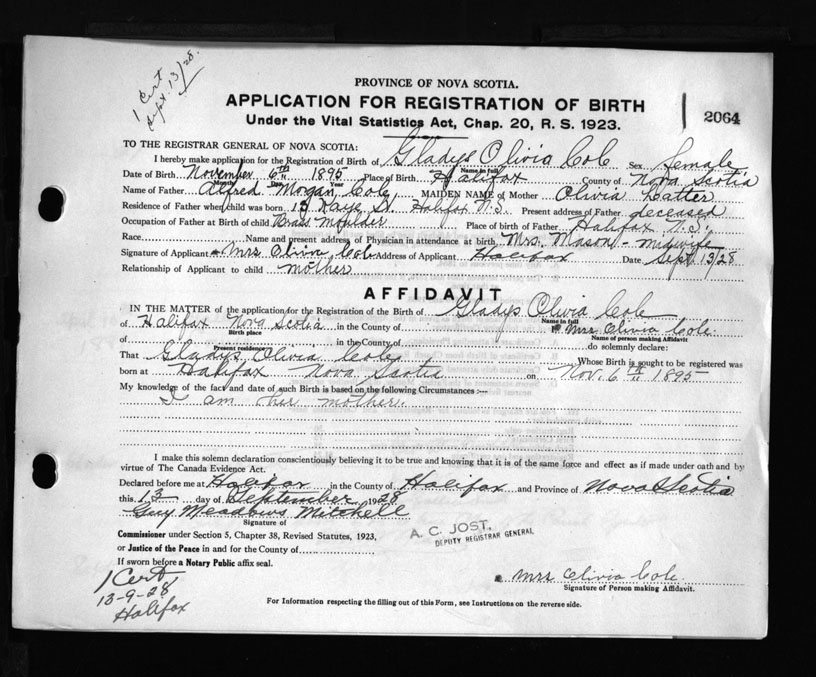 1 Cert
Sept. 13/28.
PROVINCE OF NOVA SCOTIA.
APPLICATION FOR REGISTRATION OF BIRTH
2064
Under the Vital Statistics Act, Chap. 20, R. S. 1923.
TO THE REGISTRAR GENERAL OF NOVA SCOTIA:
I hereby make application for the Registration of Birth of Gladys Olivia Cole Sex female
Name in full
Date of Birth November 6th 1895 Place of Birth Halifax County of Nova Scotia
Month Day Year
Name of Father Alfred Morgan Cole MAIDEN NAME of Mother Olivia Latter
Residence of Father when child was born Kaye St. Halifax N.S. Present address of Father deceased
Occupation of Father at Birth of child Brass Moulder Place of birth of Father Halifax N.S.
Race Name and present address of Physician in attendance at birth Mrs. Mason - midwife
Signature of Applicant Mrs Olivia Cole Address of Applicant Halifax Date Sept 13/28
Relationship of Applicant to child mother
AFFIDAVIT
IN THE MATTER of the application for the Registration of the Birth of Gladys Olivia Cole
Name in full
of Halifax Nova Scotia in the County of I Mrs Olivia Cole
Birth place Name of person making Affidavit
of in the County of do solemnly declare:
Present residence
That Gladys Olivia Cole Whose Birth is sought to be registered was
born at Halifax Nova Scotia on Nov. 6th 1895
My knowledge of the fact and date of such Birth is based on the following Circumstances :—
I am her mother.
I make this solemn declaration conscientiously believing it to be true and knowing that it is of the same force and effect as if made under oath and by
virtue of The Canada Evidence Act.
Declared before me at Halifax in the County of Halifax and Province of Nova Scotia
this 13 day of September 1928
Guy Meadows Mitchell
Signature of
A. C. JOST.
DEPUTY REGISTRAR GENERAL
Commissioner under Section 5, Chapter 38, Revised Statutes, 1923,
or Justice of the Peace in and for the County of
If sworn before a Notary Public affix seal.
Mrs Olivia Cole
Signature of Person making Affidavit.
1 Cert
13-9-28
Halifax
For Information respecting the filling out of this Form, see Instructions on the reverse side.